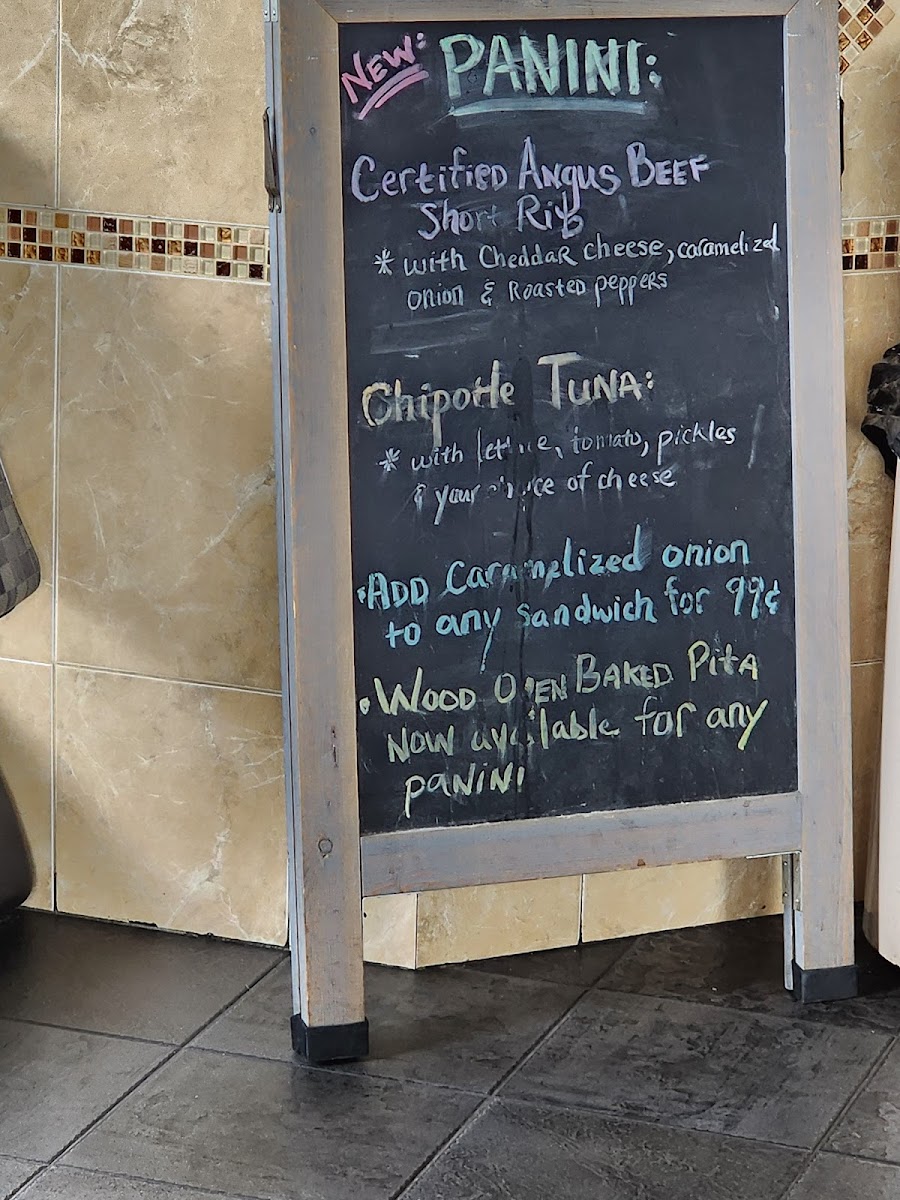 New: PANINI:
Certified Angus Beef
Short Rib
* with Cheddar cheese, caramelized
onion & Roasted peppers
Chipotle Tuna:
* with lettuce, tomato, pickles
& your choice of cheese
• Add Caramelized onion
to any sandwich for 99¢
• Wood Oven Baked Pita
Now available for any
panini